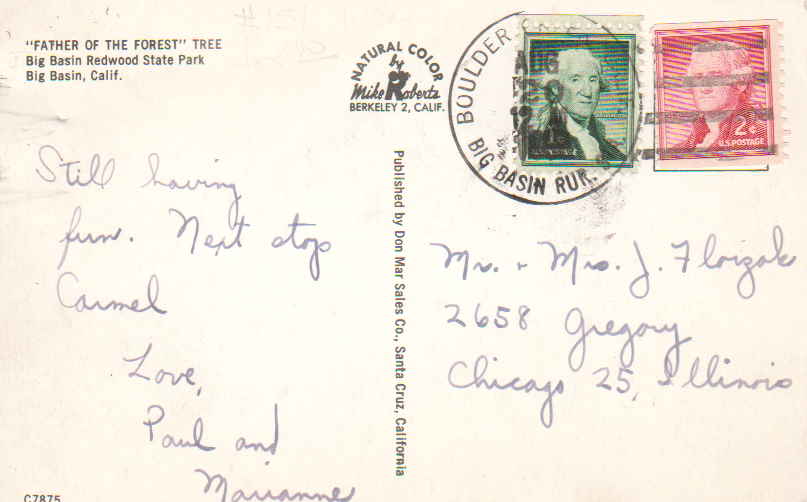 "FATHER OF THE FOREST" TREE
Big Basin Redwood State Park
Big Basin, Calif.
NATURAL COLOR
by
Mike Roberts
BERKELEY 2, CALIF.
BOULDER
AUG
BIG BASIN RUR.
2¢
U.S. POSTAGE
Still having
fun. Next stop
Carmel
Love,
Paul and
Marianne
Published by Don Mar Sales Co., Santa Cruz, California
Mr. + Mrs. J. Florzak
2658 Gregory
Chicago 25, Illinois
C7875